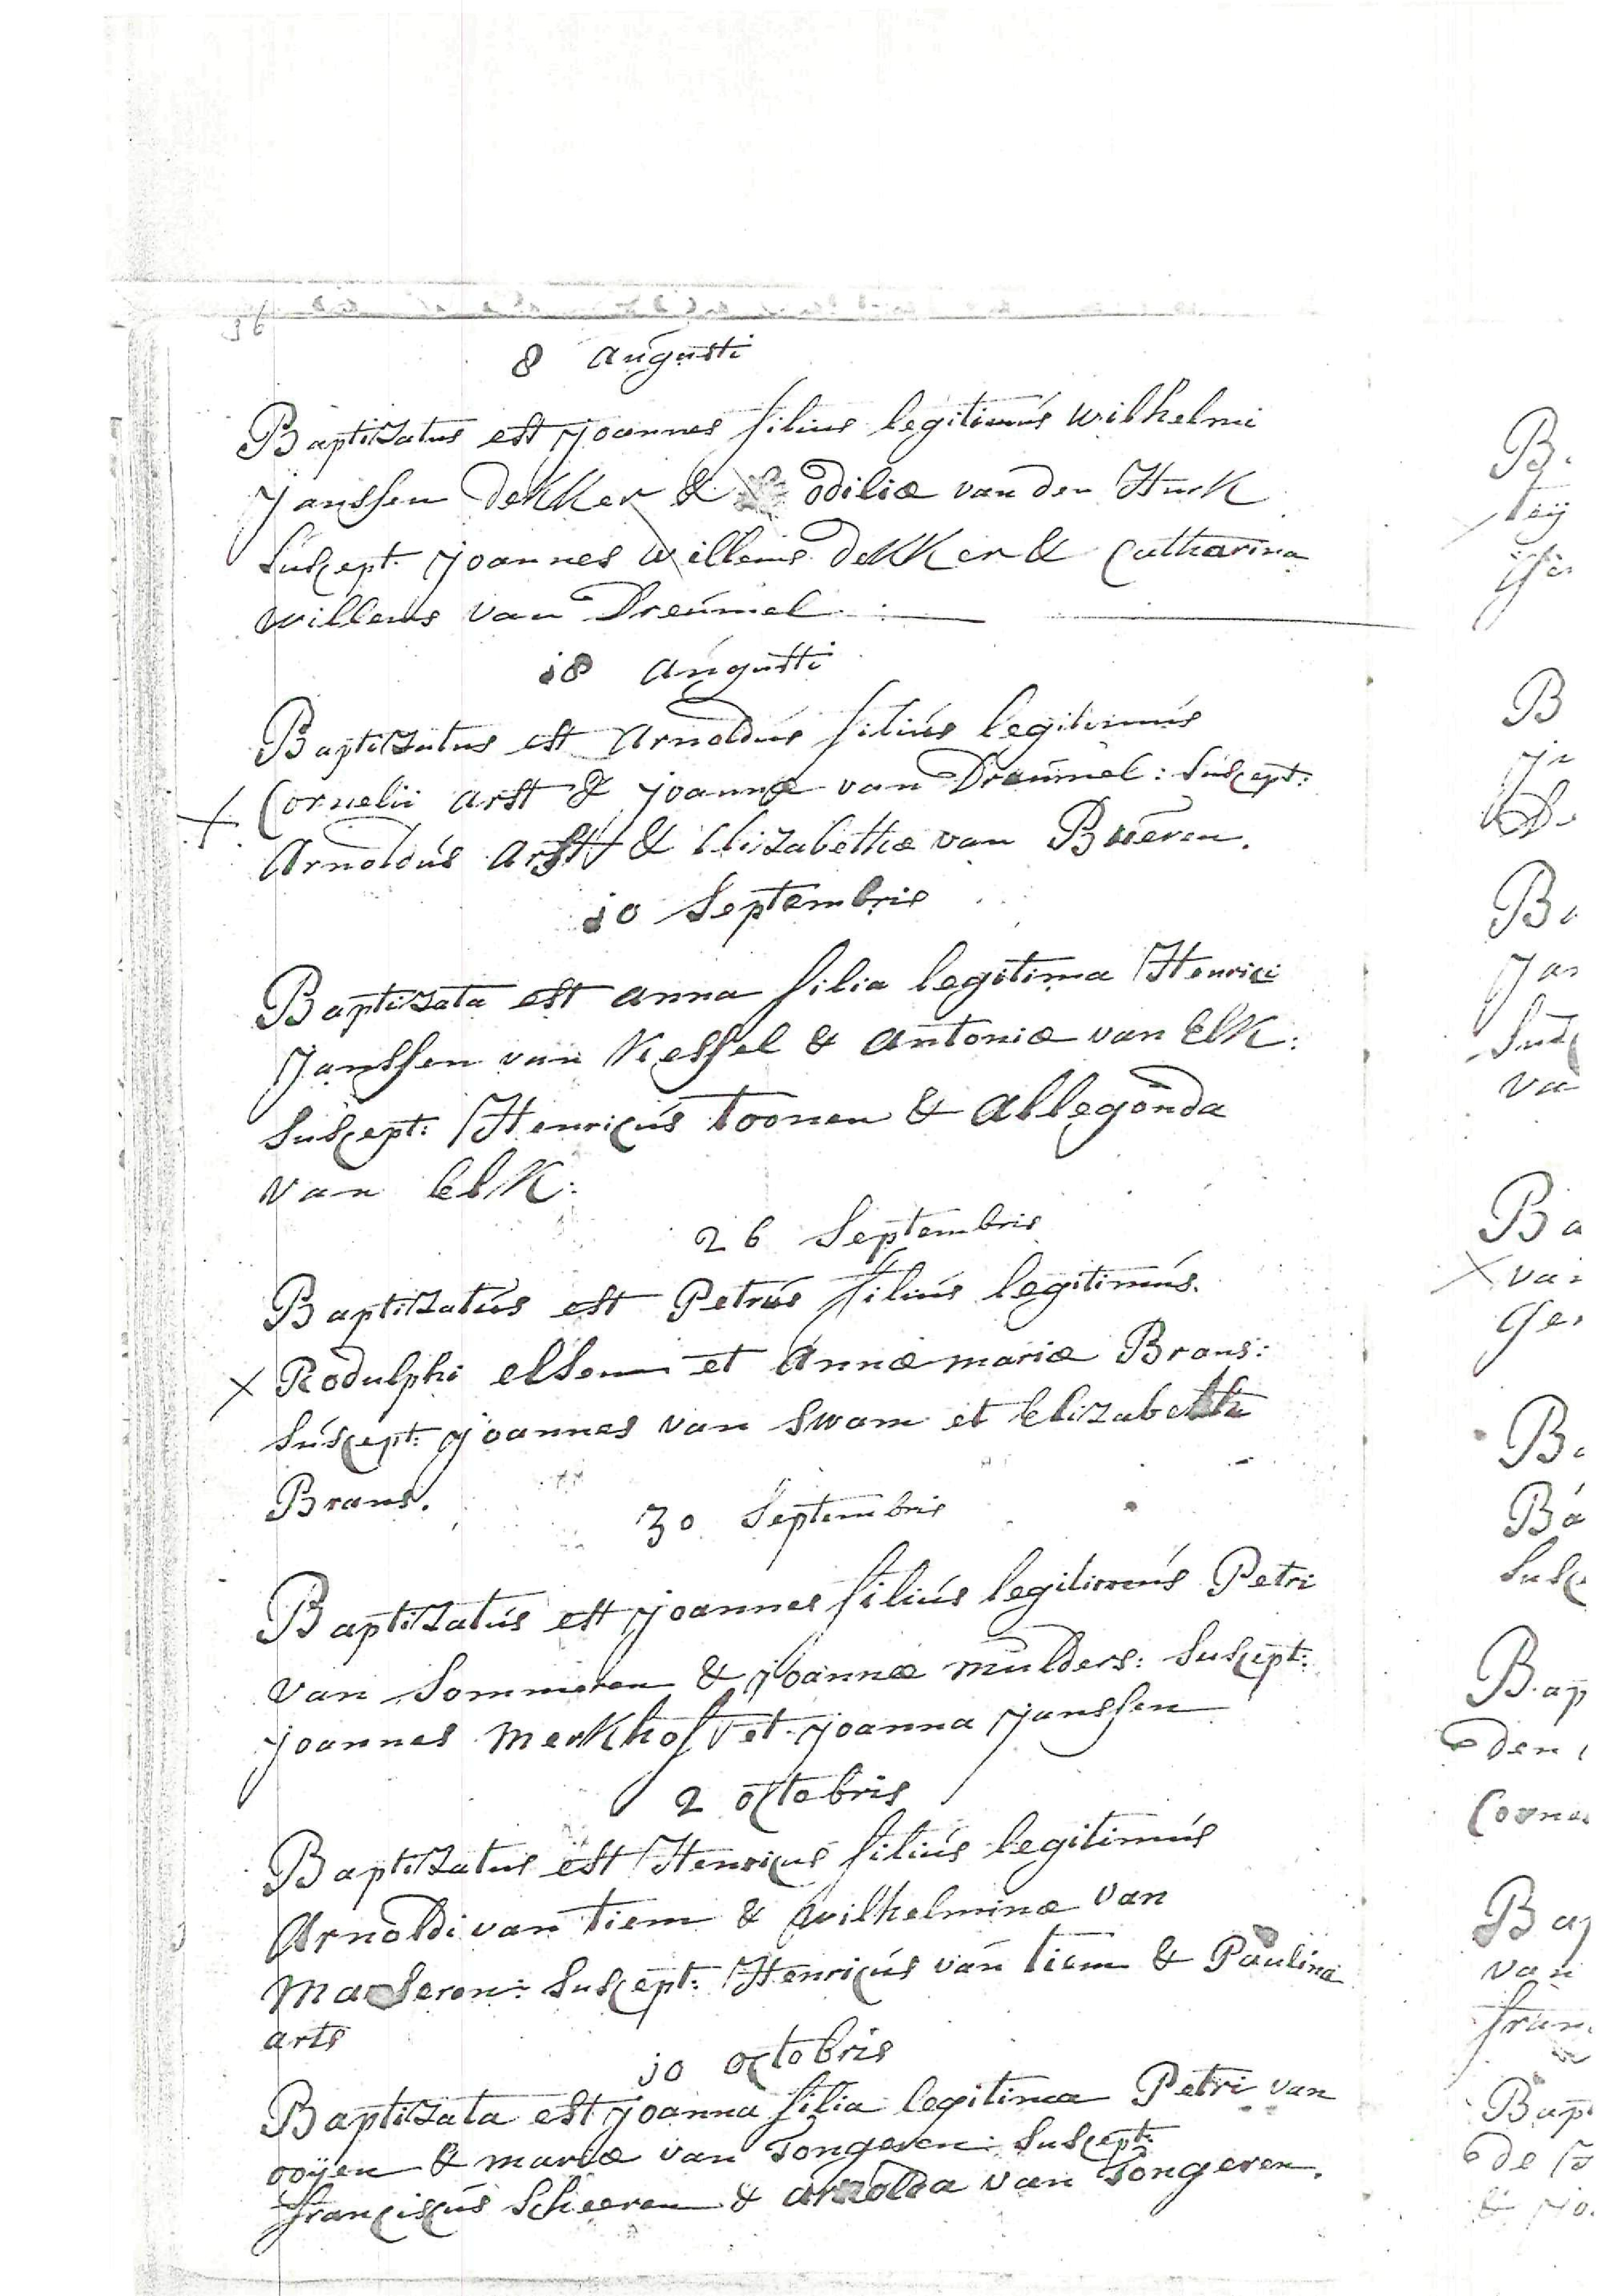 36
8 augusti
Baptizatus est joannes filius legitimus wilhelmi
Janssen dekker & odiliæ van den Hurk
Suscept. joannes willems dekker & Catharina
willems van Dreumel :
i8 augusti
Baptizatus est Arnoldus filius legitimus
Cornelii arst & joannæ van Dreumel: Suscept:
Arnoldus arst & Elizabethæ van Bueren.
io Septembris
Baptizata est anna filia legitima Henrici
Janssen van Kessel & antoniæ van Elk:
Suscept: Henricus Toonen & allegonda
van Elk:
26 Septembris
Baptizatus est Petrus filius legitimus.
Rodulphi elsen et Annæ mariæ Brans:
Suscept: joannes van Swam et Elizabetha
Brans.
30 Septembris
Baptizatus est joannes filius legitimus Petri
van Sommeren & joannæ mulders: Suscept:
joannes merkhoft et joanna janssen
2 octobris
Baptizatus est Henricus filius legitimus
Arnoldi van Tiem & wilhelminæ van
Maseren: Suscept: Henricus van tiem & Paulina
arts
io octobris
Baptizata est joanna filia legitima Petri van
ooÿen & mariæ van Tongeren: Suscept:
franciscus Scheeren & arnolda van Tongeren.